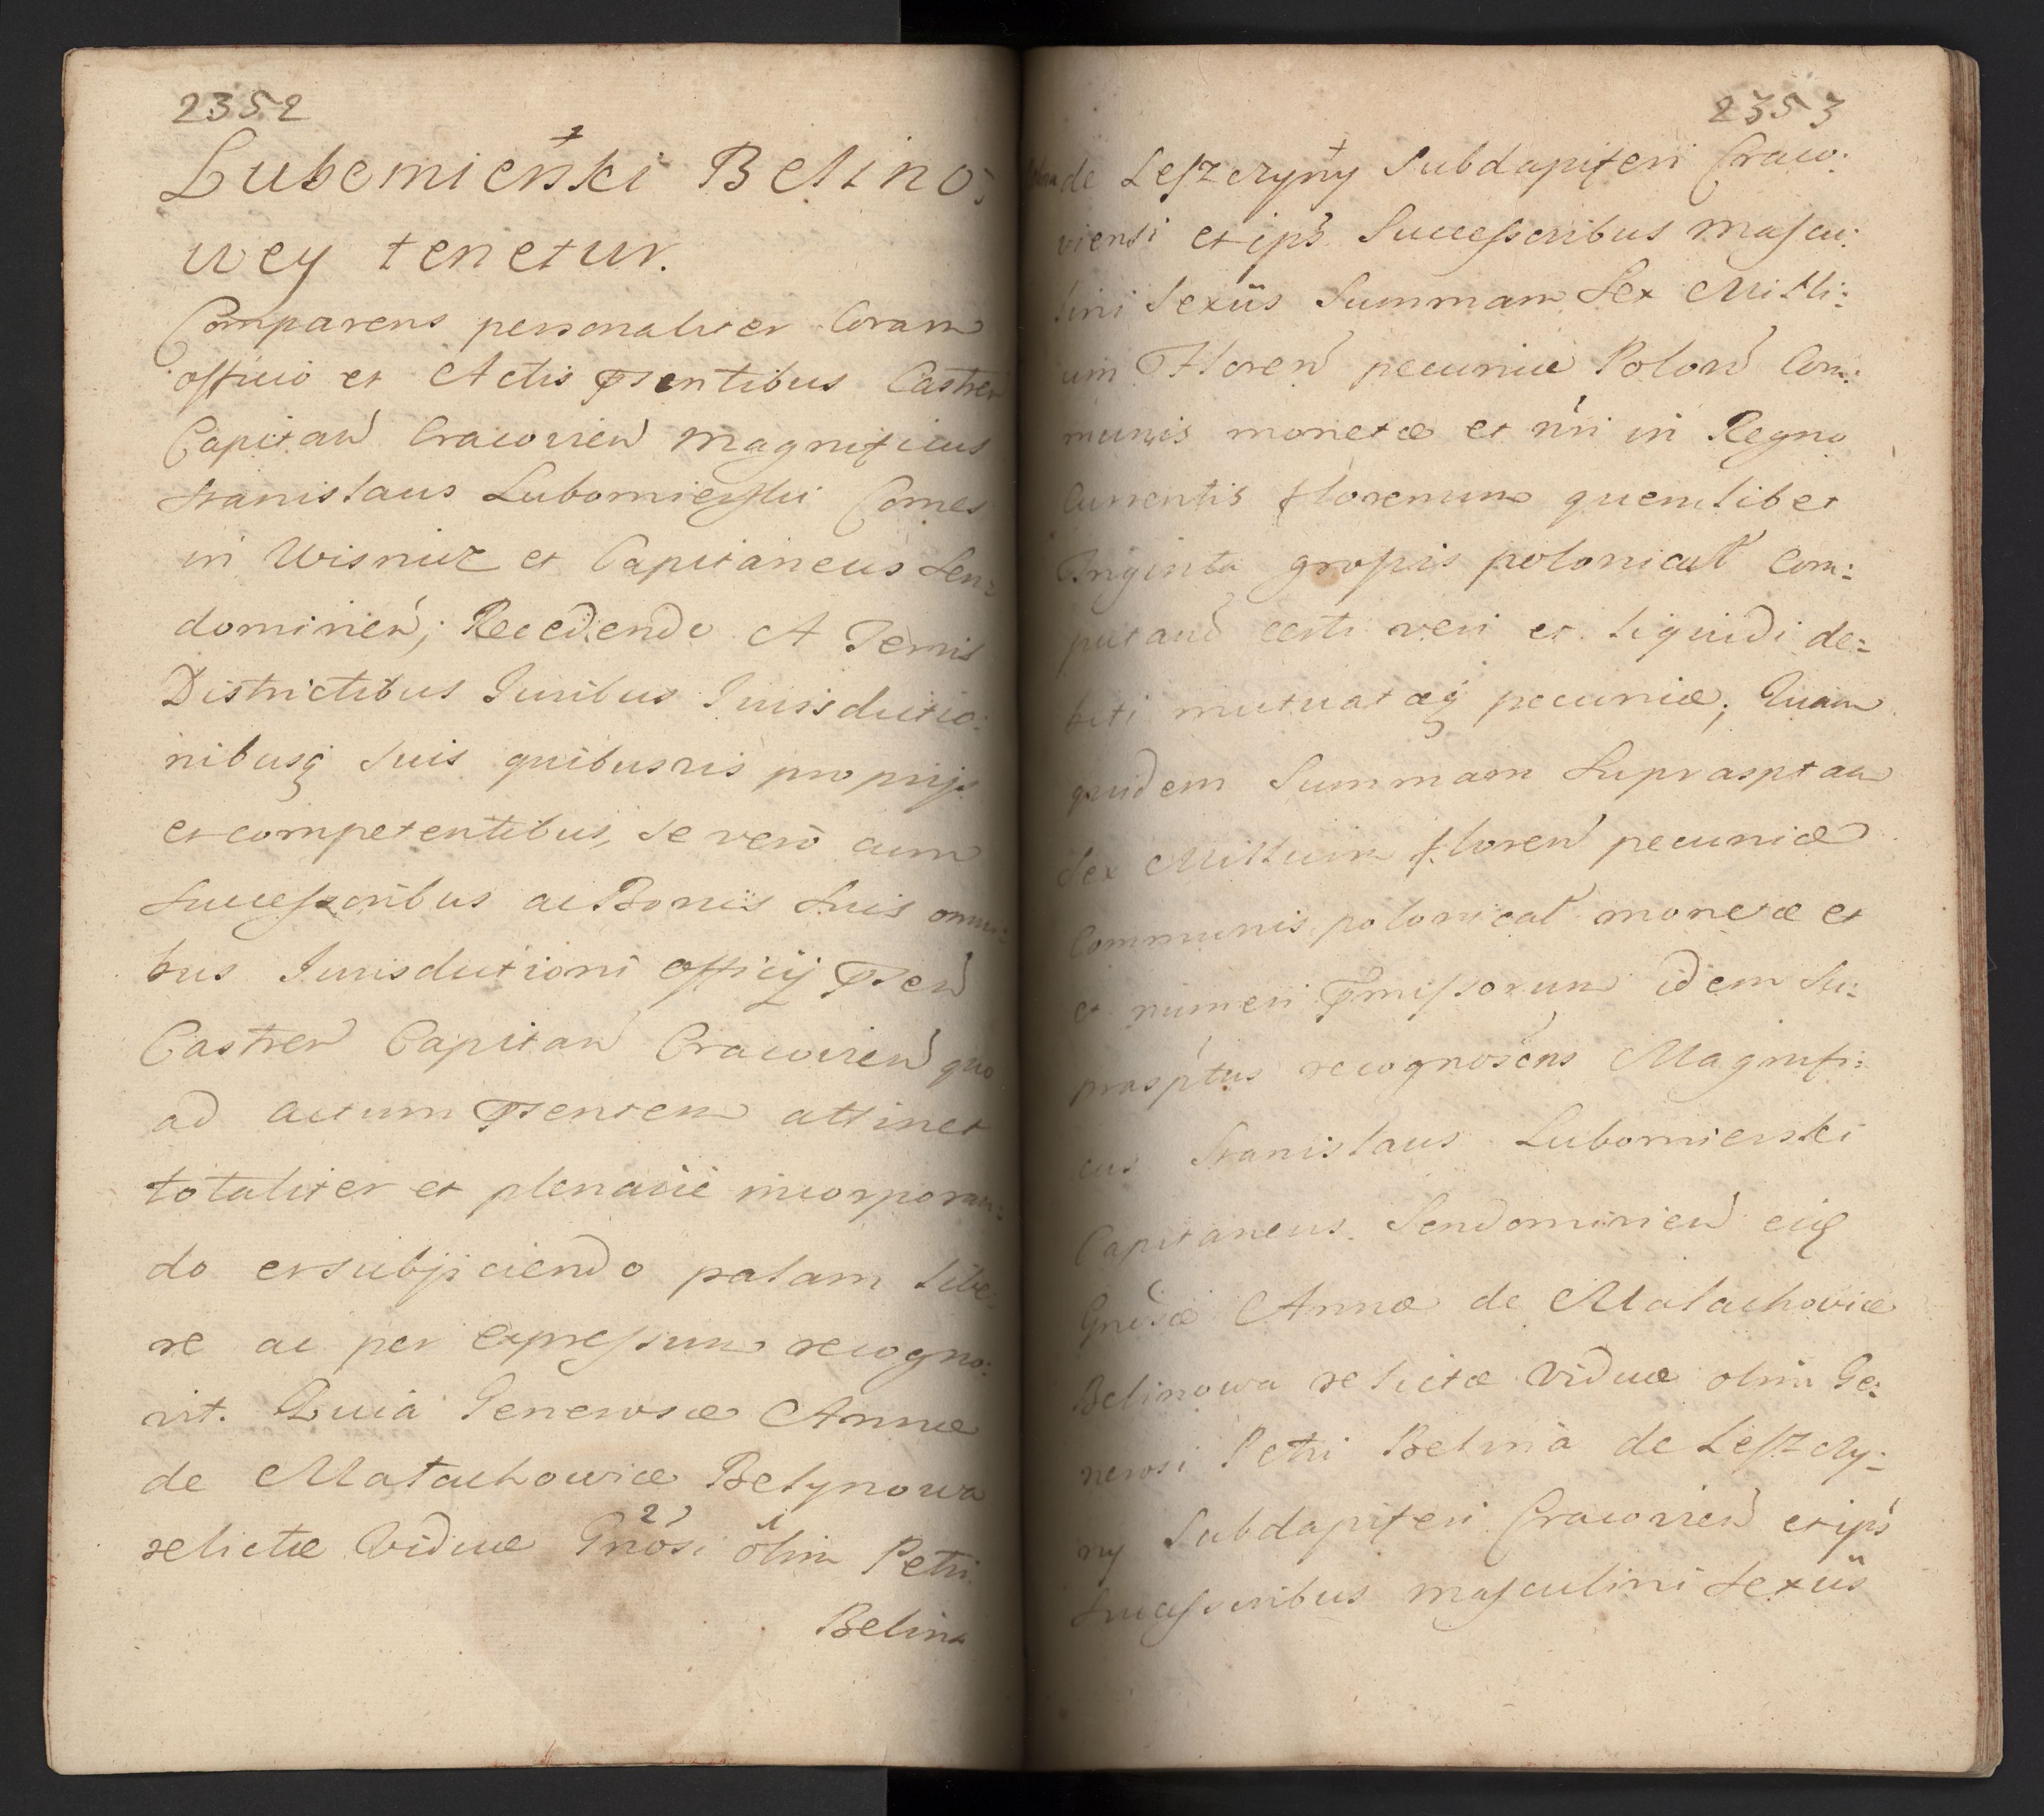 2352
Lubomienski Belino:
wey tenetur.
Comparens personaliter Coram
officio et Actis psentibus Castren
Capitan Cracovien Magnificus
Stanislaus Lubomierski Comes
in Wisnicz et Capitaneus Sen:
domirien; Recedendo A Terris
Districtibus Juribus Jurisdictio:
nibusq suis quibusvis proprijs
et competentibus, se vero cum
Successoribus ac Bonis Suis omni:
bus Jurisdictioni officij psen
Castren Capitan Cracovien quo
ad actum psentem attinet
totaliter et plenarie incorporan:
do et subijciendo palam libe:
re ac per expressum recogno:
vit. Quia Generosæ Annæ
de Małachowice Belynowa
relictæ Viduæ Gnosi olim Petri
Belina
2353
de Leszczyny Subdapiferi Craco:
viensi et ips Successoribus mascu:
lini Sexûs Summam Sex Milli:
um Floren pecuniæ Polon Com:
munis monetæ et nri in Regno
Currentis florenum quemlibet
Triginta grossis polonical Com:
putand certi veri et liquidi de:
biti mutuatæq pecuniæ; Quam
quidem Summam Suprasptam
Sex Millium floren pecuniæ
Communis polonical monetæ et
et numeri pmissorum idem Su:
prasptus recognoscens Magnifi:
cus Stanislaus Lubomierski
Capitaneus Sendomirien eidq
Gnosæ Annæ de Małachowice
Belinowa relictæ Viduæ olim Ge:
nerosi Petri Belina de Leszczy:
ny Subdapiferi Cracovien et ips
Successoribus masculini Sexûs